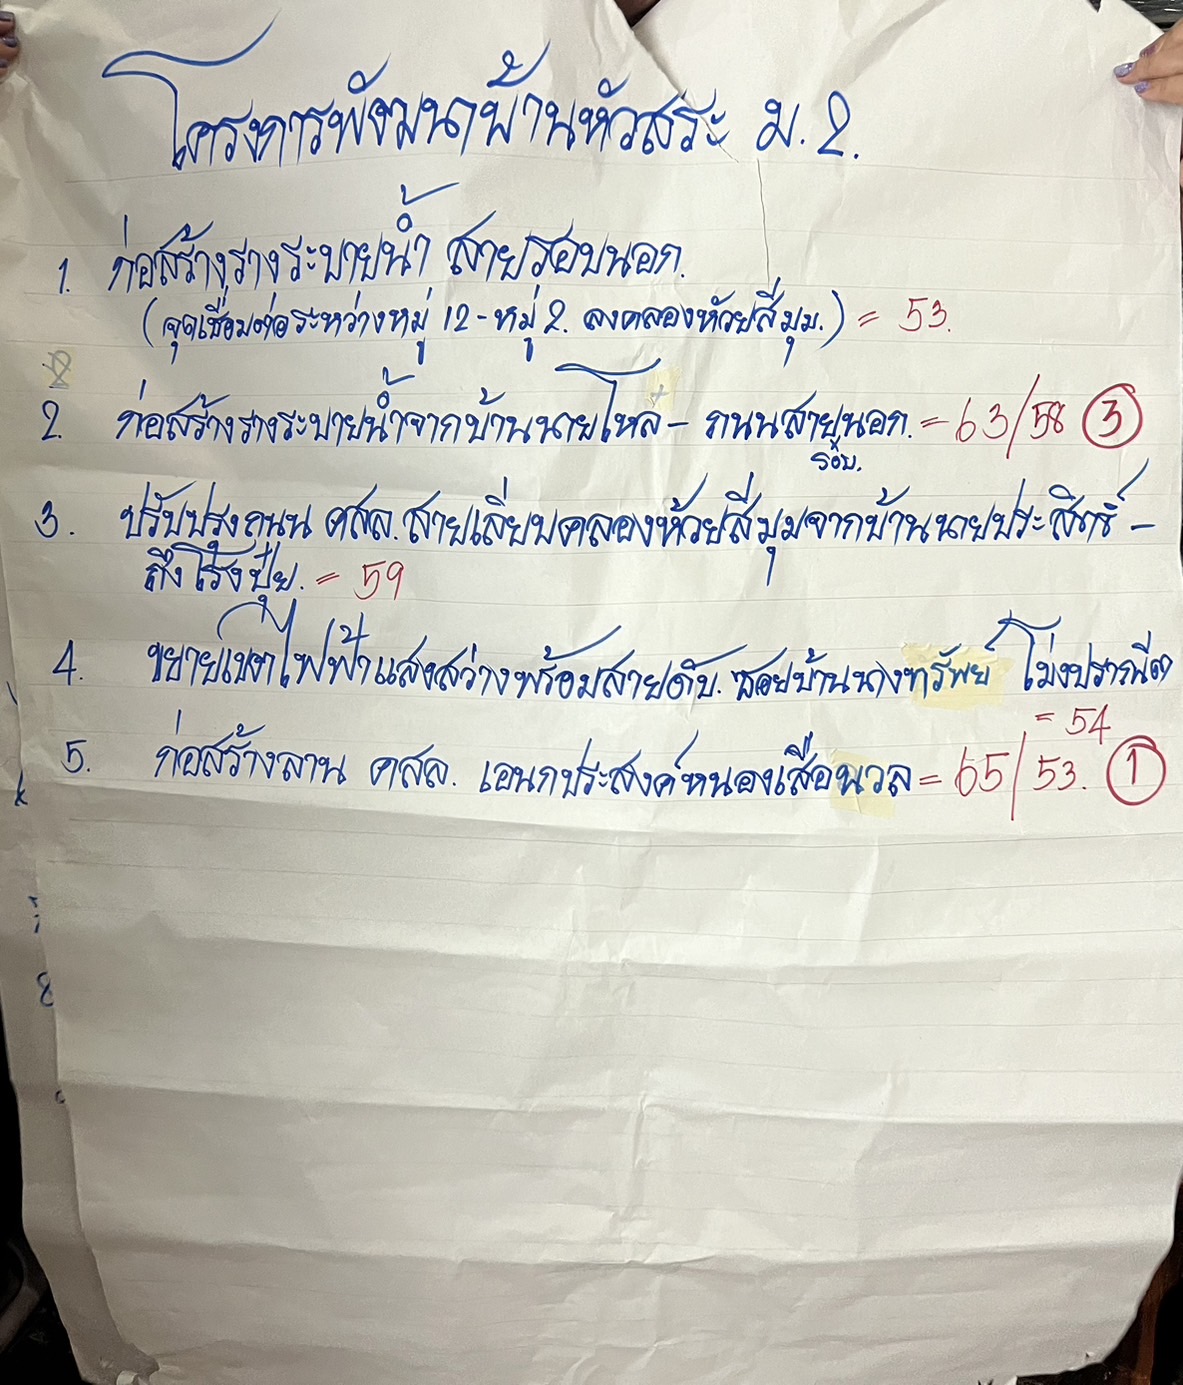 โครงการพัฒนาบ้านหัวสระ ม.2.
1. ก่อสร้างรางระบายน้ำ สายรอบนอก.
(จุดเชื่อมต่อระหว่างหมู่ 12 - หมู่ 2. ลงคลองห้วยสี่มุม.) = 53.
2
2. ก่อสร้างรางระบายน้ำจากบ้านนายไหล - ถนนสายนอก. = 63/58 3
รอบ.
3. ปรับปรุงถนน คสล. สายเลียบคลองห้วยสี่มุมจากบ้านนายประสิทธิ์ -
ถึงโรงปุ๋ย. = 59
4. ขยายเขตไฟฟ้าแสงสว่างพร้อมสายดับ. ซอยบ้านนางทรัพย์ โม่งปราณีต
= 54
5. ก่อสร้างลาน คสล. เอนกประสงค์หนองเสือนวล = 65/53. 1